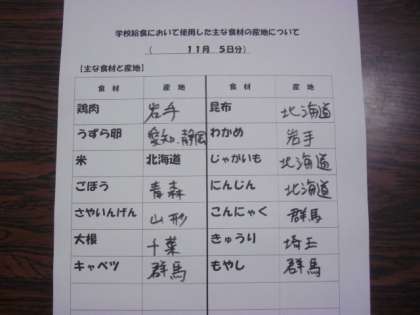 学校給食において使用した主な食材の産地について
（　　１１月　５日分）
【主な食材と産地】
食　材　産　地　食　材　産　地
鶏肉　岩手　昆布　北海道
うずら卵　愛知、静岡　わかめ　岩手
米　北海道　じゃがいも　北海道
ごぼう　青森　にんじん　北海道
さやいんげん　山形　こんにゃく　群馬
大根　千葉　きゅうり　埼玉
キャベツ　群馬　もやし　群馬